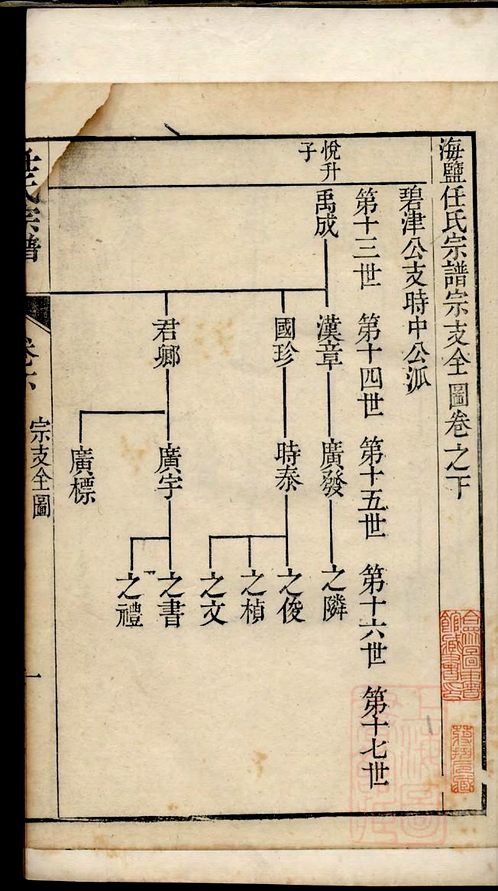 海鹽任氏宗譜宗支全圖卷之下
碧津公支時中公派
第十三世 第十四世 第十五世 第十六世 第十七世
悅升子
禹成 漢章 廣發 之隣
國珍 時泰 之俊
之楨
之文
君鄉 廣宇 之書
之禮
廣標
氏宗譜
宗支全圖
一